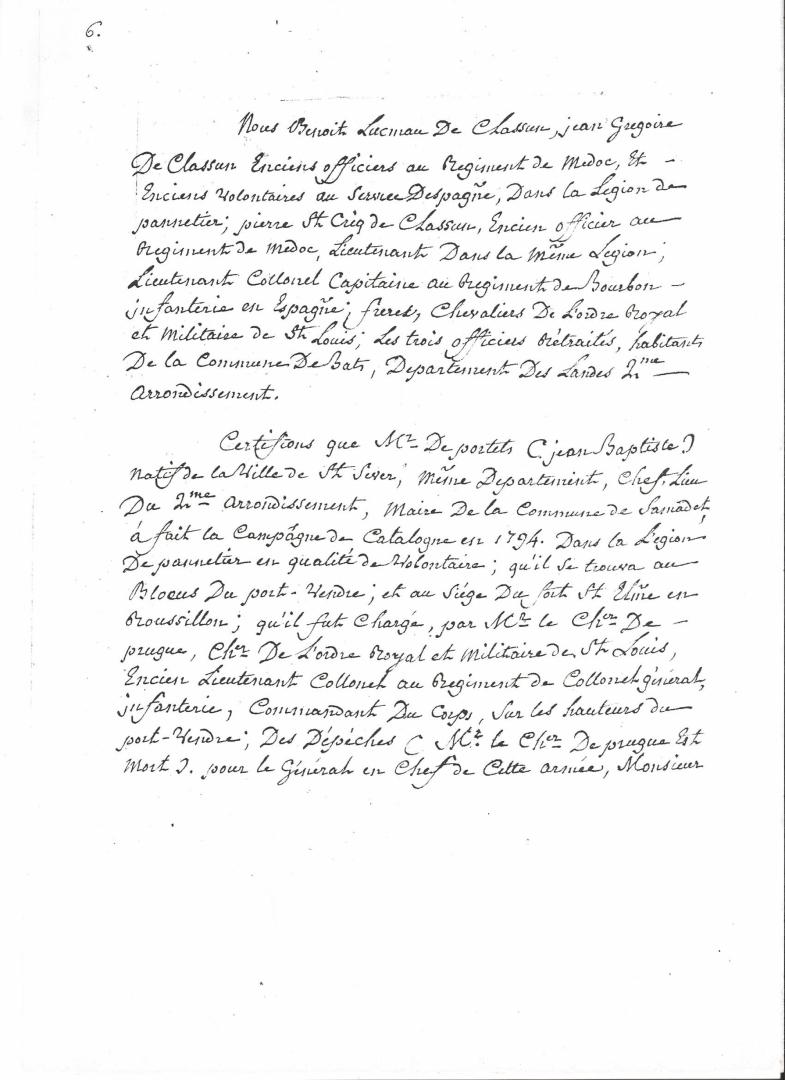 6.
Nous Benoit Lucmau De Classun, jean Gregoire
De Classun Enciens officiers au Regiment de Medoc, Et –
Enciens Volontaires au Service Despagñe, Dans la Légion de
pannetier; pierre St Criq de Classun, Encien officier au
Regiment de Medoc, Lieutenant Dans la même Légion;
Lieutenant Collonel Capitaine au Regiment de Bourbon –
infanterie en Espagñe; freres, Chevaliers De L'ordre Royal
et Militaire de St Louis; Les trois officiers Rétraités, habitants
De la Commune De Bats, Departement Des Landes 2me
Arrondissement.
Certifions que Mr De portets (jean Baptiste)
natif de la Ville de St Sever, même Departement, Chef. Lieu
Du 2me Arrondissement, Maire De la Commune de Samadet,
á fait la Campâgne de Catalogne en 1794. Dans la Légion
De pannetier en qualité de Volontaire; qu'il se trouva au
Blocus Du port-Vendre; et au Siége Du fort St Elme en
Roussillon; qu'il fut Chargé, par Mr le Cher De –
prugue, Cher De L'ordre Royal et Militaire de St Louis,
Encien Lieutenant Collonel au Regiment de Collonel général,
infanterie, Commandant Du Corps, Sur les hauteurs du
port-Vendre; Des Dépéches (Mr le Cher De prugue Est
Mort). pour le Général en Chef de Cette armée, Monsieur